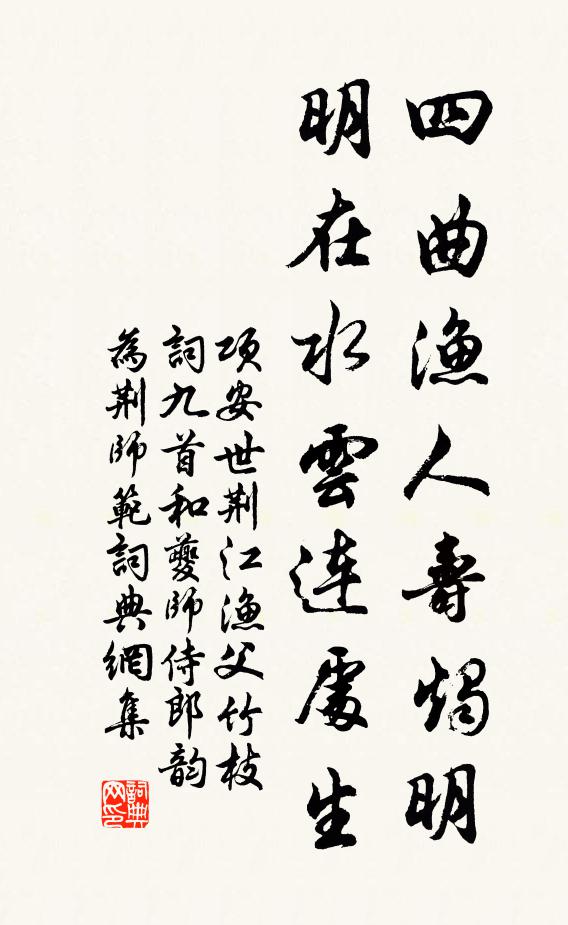 四曲漁人壽燭明
明在水雲連處生
項安世荆江漁父竹枝
詞九首和夔師侍郎韵
為荆師範詞典網集
詞典网印